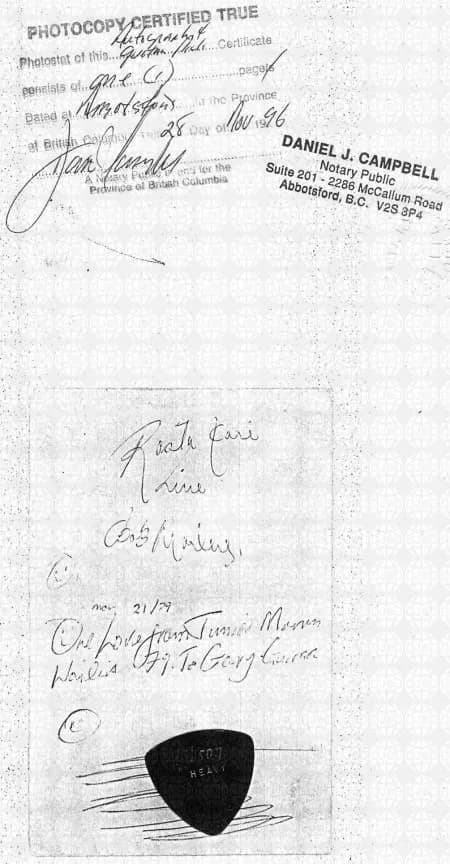 PHOTOCOPY CERTIFIED TRUE
Autograph &
Photostat of this...Guitar Pick...Certificate
consists of one (1) pages
Dated at Abbotsford in the Province
of British Columbia this 28 Day of Nov 1996
A Notary Public in and for the
Province of British Columbia
DANIEL J. CAMPBELL
Notary Public
Suite 201 - 2286 McCallum Road
Abbotsford, B.C. V2S 3P4
Rasta
Live
Bob Marley.
Nov 21/79
One Love from Junior Marvin
Wailers 79. To Gary
HEAVY